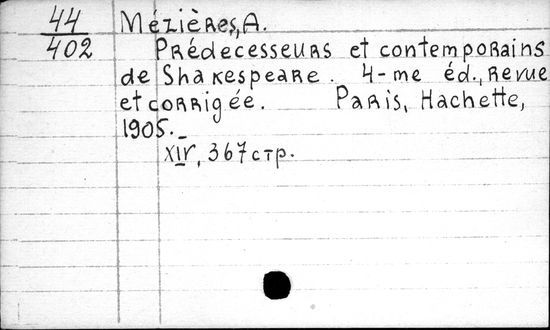 44 Mézières, A.
402 Prédecesseurs et contemporains
de Shakespeare. 4-me éd., revue
et corrigée. Paris, Hachette,
1905.-
XIV, 367 стр.